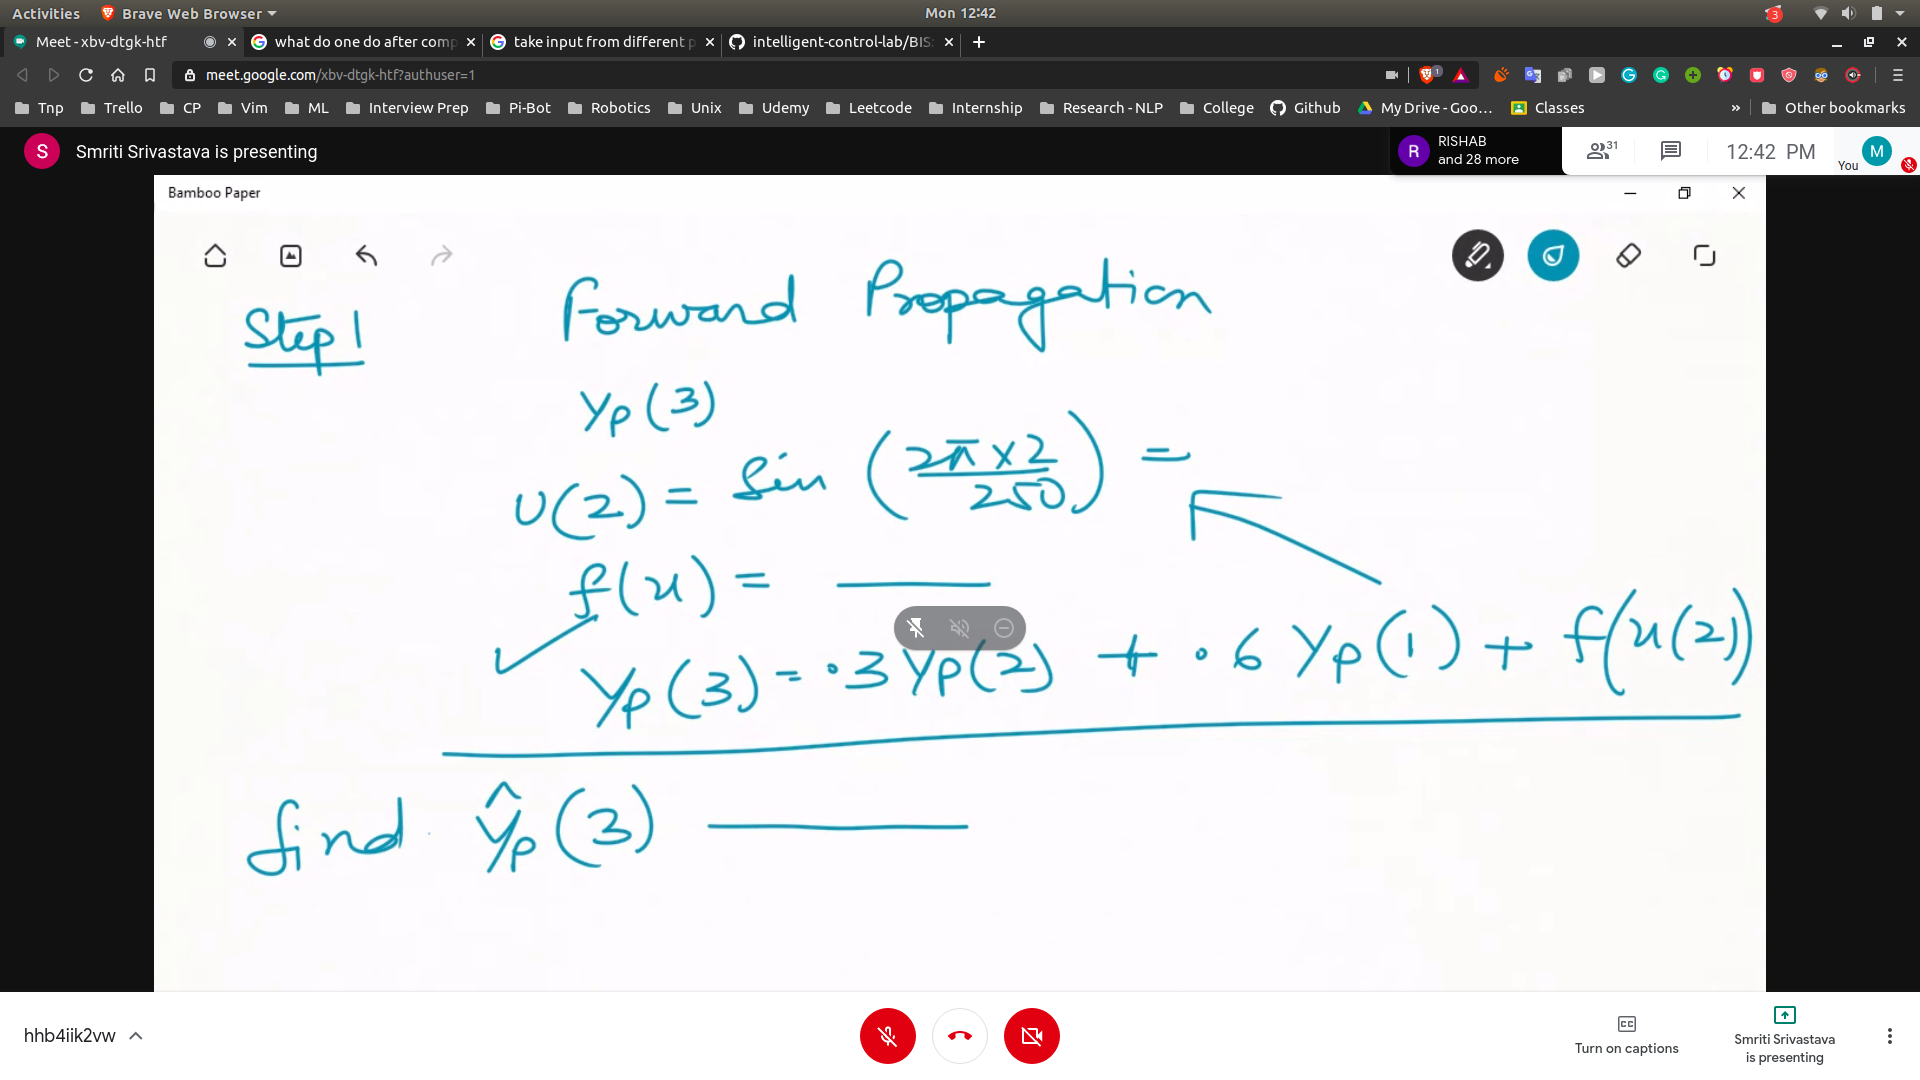 Activities Brave Web Browser Mon 12:42 3
Meet - xbv-dtgk-htf what do one do after comp take input from different p intelligent-control-lab/BIS
meet.google.com/xbv-dtgk-htf?authuser=1 1
Tnp Trello CP Vim ML Interview Prep Pi-Bot Robotics Unix Udemy Leetcode Internship Research - NLP College Github My Drive - Goo... Classes » Other bookmarks
S Smriti Srivastava is presenting R RISHAB and 28 more 31 12:42 PM You M
Bamboo Paper
Step 1 Forward Propagation
yp(3)
U(2) = Sin (2π×2/250) =
f(u) =
yp(3) = .3 yp(2) + .6 yp(1) + f(u(2))
find ŷp(3)
hhb4iik2vw Turn on captions Smriti Srivastava is presenting